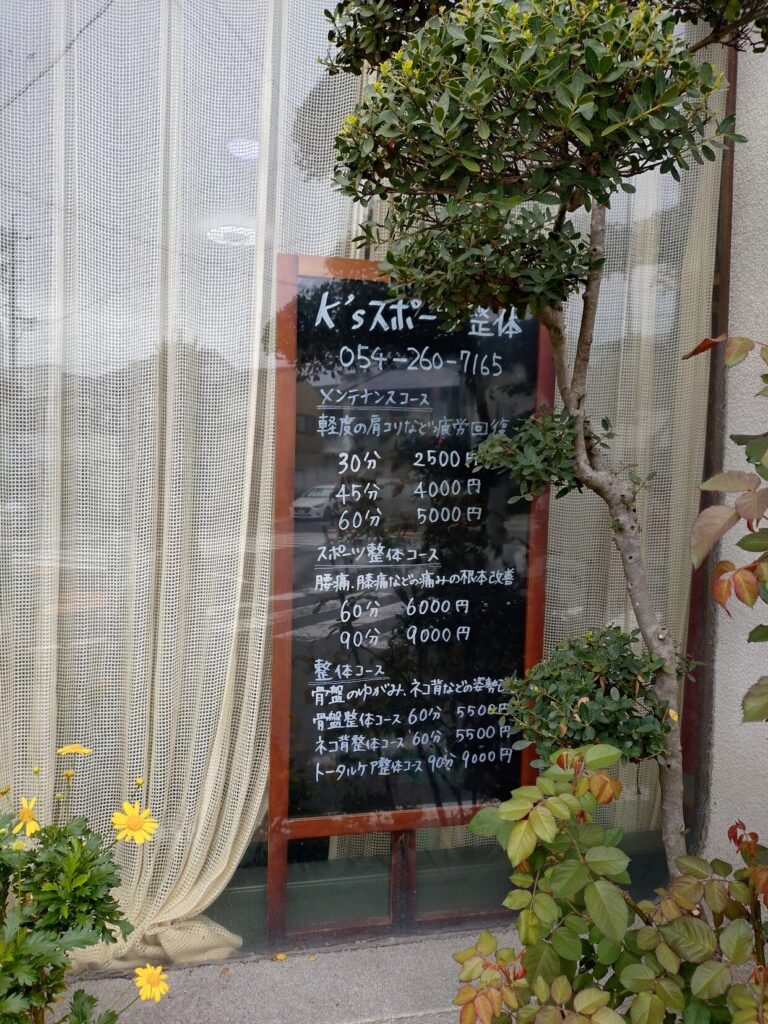 K'sスポーツ整体
054-260-7165
メンテナンスコース
軽度の肩コリなど疲労回復
30分 2500円
45分 4000円
60分 5000円
スポーツ整体コース
腰痛、膝痛などの痛みの根本改善
60分 6000円
90分 9000円
整体コース
骨盤のゆがみ、ネコ背などの姿勢
骨盤整体コース 60分 5500円
ネコ背整体コース 60分 5500円
トータルケア整体コース 90分 9000円